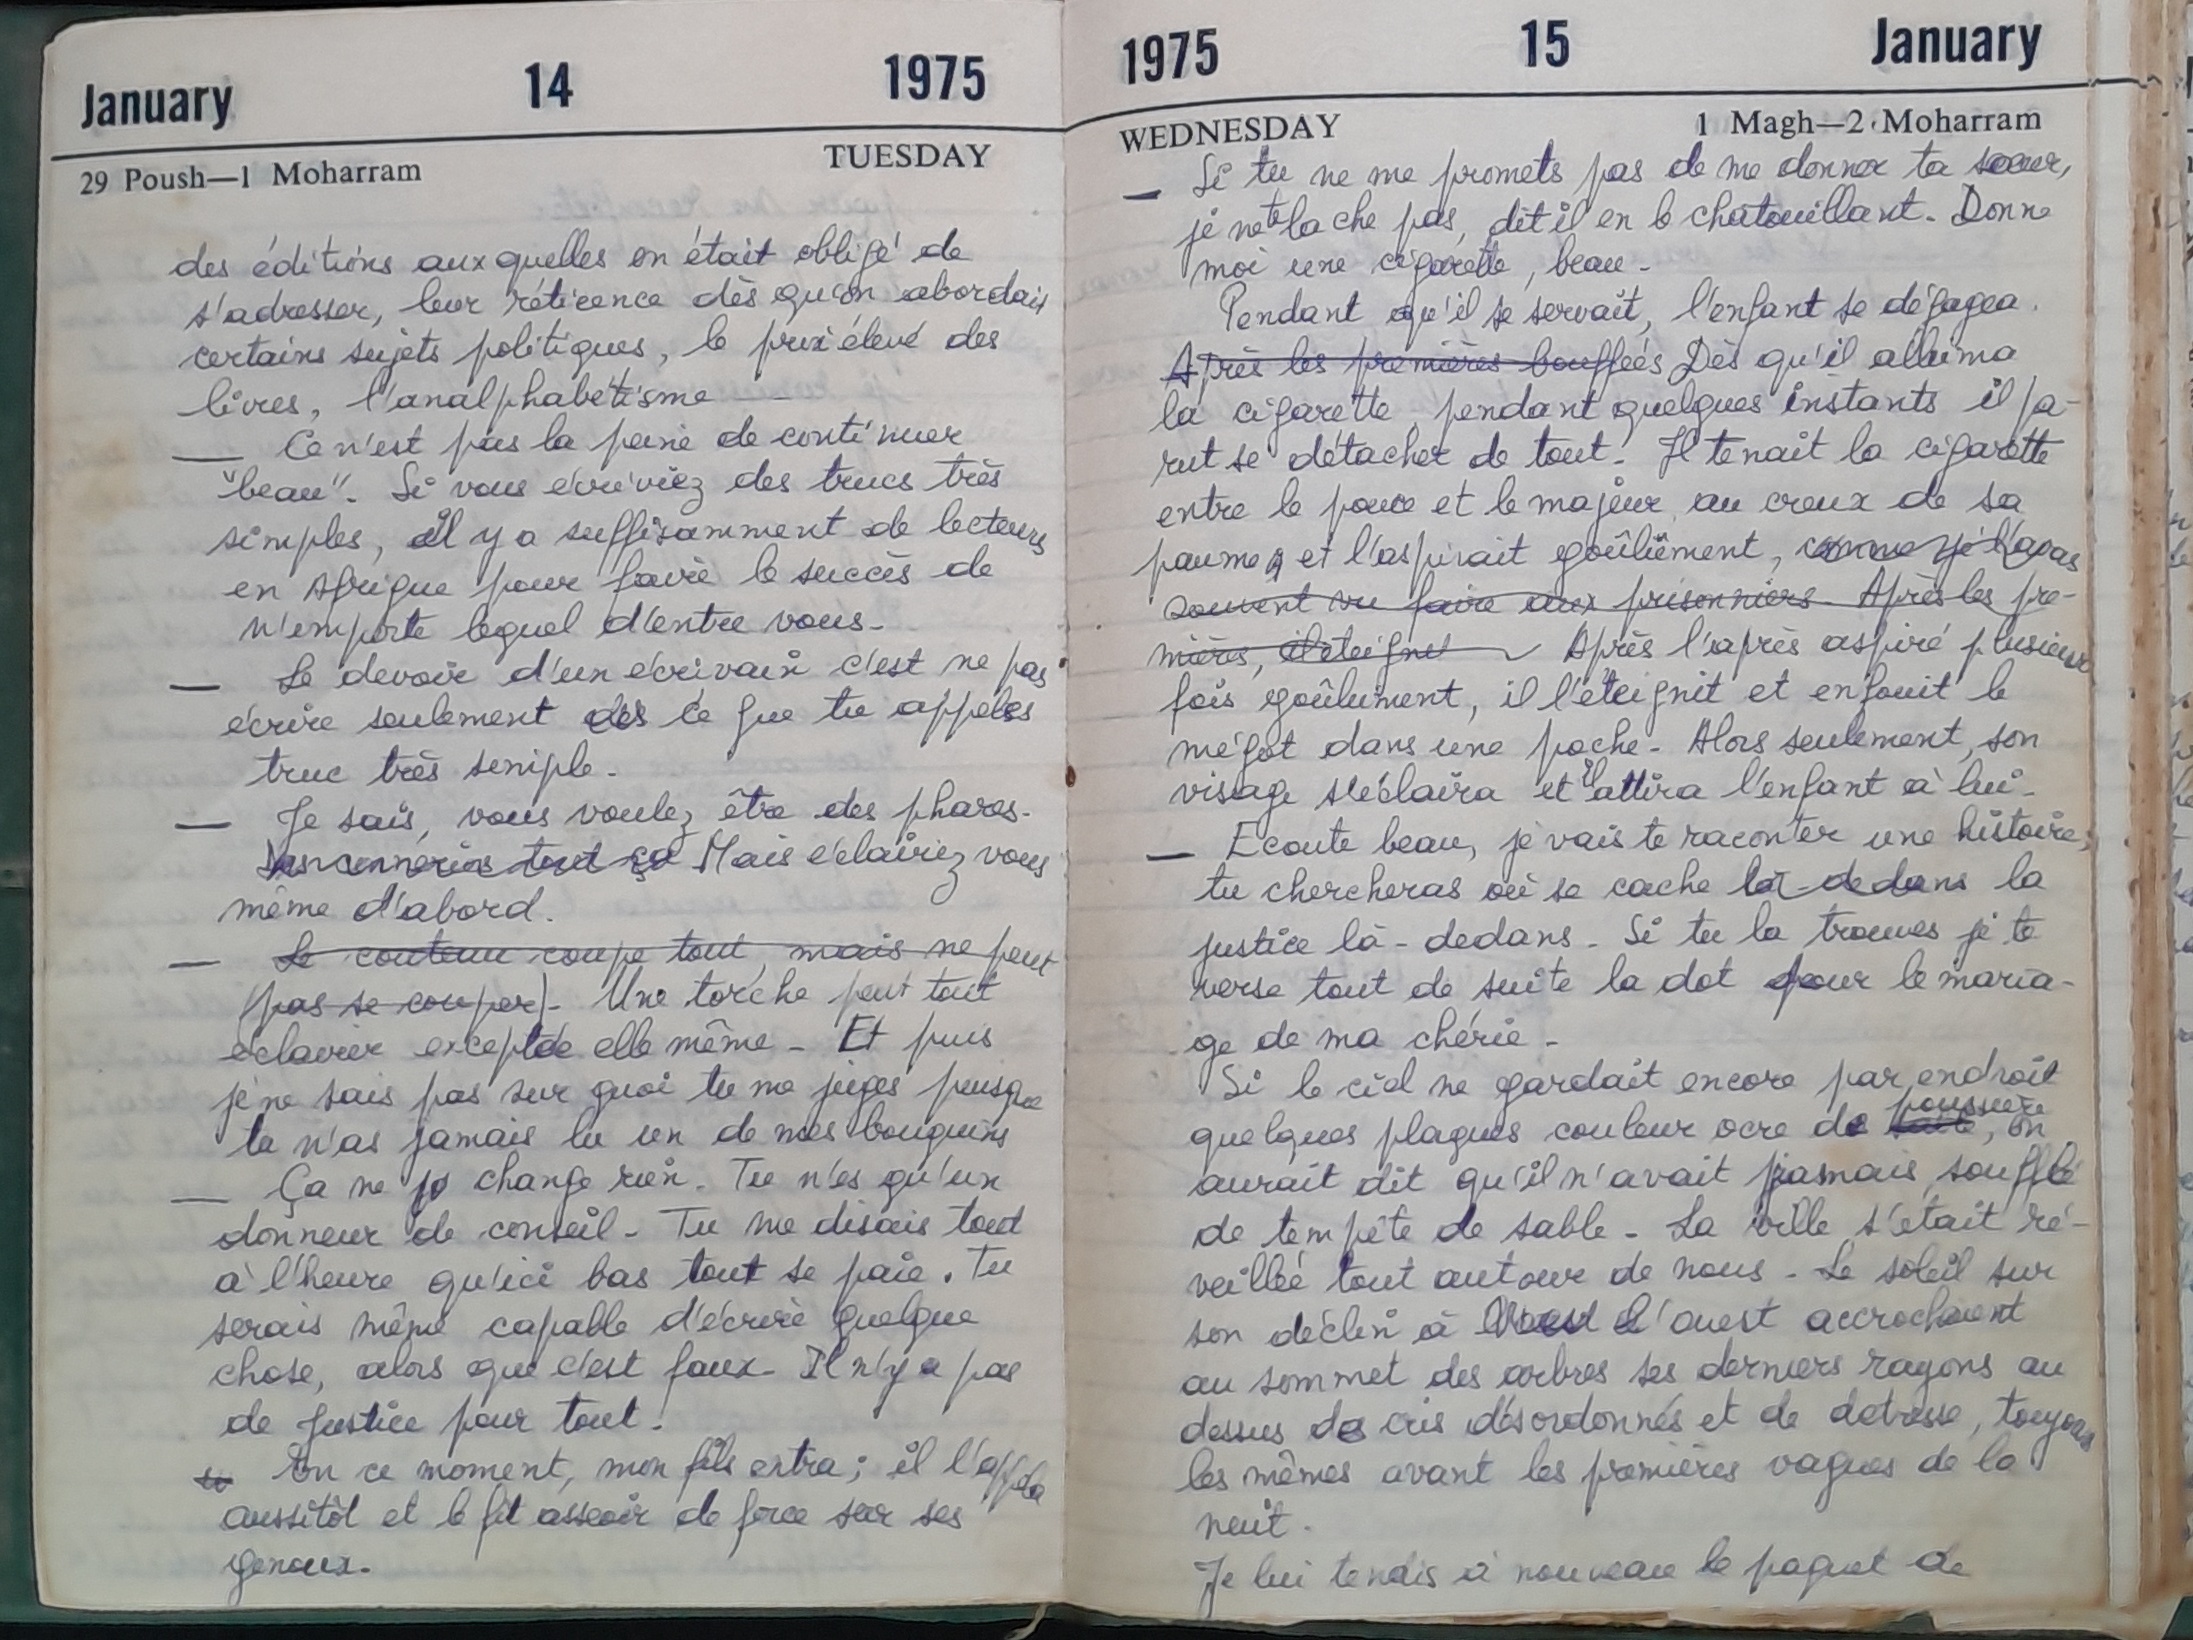 January 14 1975
TUESDAY
29 Poush—1 Moharram
des éditions auxquelles on était obligé de
s'adresser, leur réticence dès qu'on abordais
certains sujets politiques, le prix élevé des
livres, l'analphabétisme - -
— Ce n'est pas la peine de continuer
"beau". Si vous écriviez des trucs très
simples, il y a suffisamment de lecteurs
en Afrique pour faire le succès de
n'emporte lequel d'entre vous.
— Le devoir d'un écrivain c'est ne pas
écrire seulement des ce que tu appeles
truc très simple.
— Je sais, vous voulez être des phares.
Des conneries tout ça Mais éclairiez vous
même d'abord.
— Le couteau coupe tout, mais ne peut
(pas se couper). Une torche peut tout
éclairer exceptée elle même. Et puis
je ne sais pas sur quoi tu me juges puisque
tu n'as jamais lu un de mes bouquins
— Ça ne change rien. Tu n'es qu'un
donneur de conseil. Tu me disais tout
à l'heure qu'ici bas tout se paie. Tu
serais même capable d'écrire quelque
chose, alors que c'est faux. Il n'y a pas
de justice pour tout.
En ce moment, mon fils entra; il l'appela
aussitôt et le fit asseoir de force sur ses
genoux.
1975 15 January
WEDNESDAY 1 Magh—2 Moharram
— Si tu ne me promets pas de me donner ta soeur,
je ne te lache pas, dit il en le chatouillant. Donne
moi une cigarette, beau.
Pendant qu'il se servait, l'enfant se dégagea.
Après les premières bouffées Dès qu'il alluma
la cigarette, pendant quelques instants il pa-
rut se détacher de tout. Il tenait la cigarette
entre le pouce et le majeur, au creux de sa
paume, et l'aspirait goûlûment, comme je l'avais
souvent vu faire aux prisonniers. Après les pre-
mières, il éteignit Après l'après aspiré plusieurs
fois goûlument, il l'éteignit et enfouit le
mégot dans une poche. Alors seulement, son
visage s'éclaira et il attira l'enfant à lui.
— Ecoute beau, je vais te raconter une histoire;
tu chercheras où se cache là-dedans la
justice là-dedans. Si tu la trouves je te
verse tout de suite la dot pour le maria-
ge de ma chérie.
Si le ciel ne gardait encore par endroit
quelques plaques couleur ocre de poussière, on
aurait dit qu'il n'avait jamais soufflé
de tempête de sable. La ville s'était ré-
veillée tout autour de nous. Le soleil sur
son déclin à l'ouest accrochaient
au sommet des arbres ses derniers rayons au
dessus de cris désordonnés et de detresse, toujours
les mêmes avant les premières vagues de la
nuit.
Je lui tendis à nouveau le paquet de